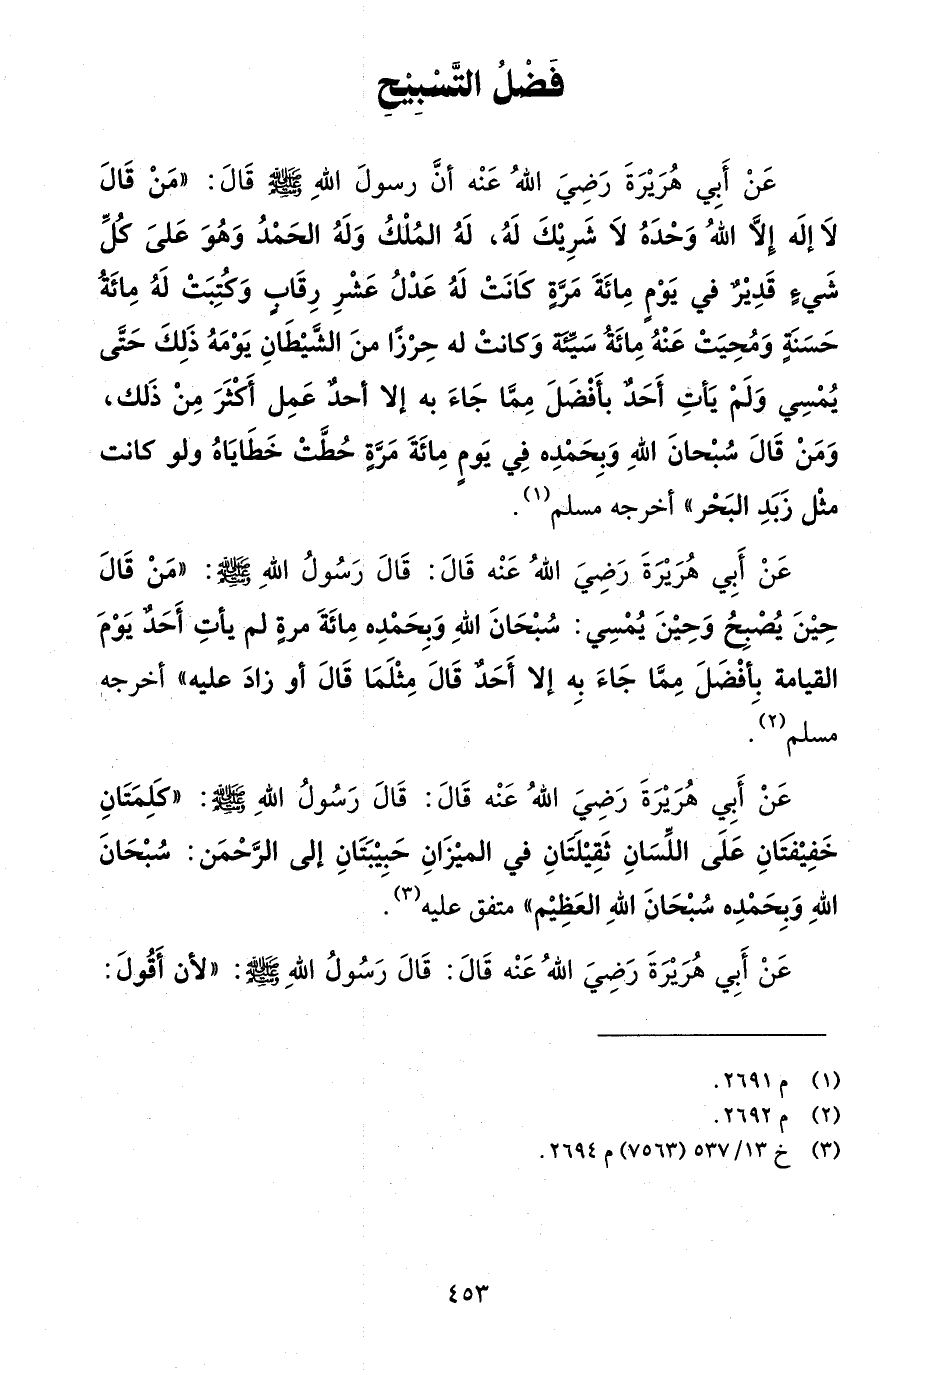 فَضْلُ التَّسْبِيْحِ
عَنْ أَبِي هُرَيْرَةَ رَضِيَ اللهُ عَنْه أنَّ رسولَ اللهِ ﷺ قَالَ: «مَنْ قَالَ
لاَ إلَه إِلاَّ اللهُ وَحْدَهُ لاَ شَرِيْكَ لَهُ، لَهُ المُلْكُ وَلَهُ الحَمْدُ وَهُوَ عَلىَ كُلِّ
شَيءٍ قَدِيْرٌ في يَوْمٍ مِائَةَ مَرَّةٍ كَانَتْ لَهُ عَدْلُ عَشْرِ رِقَابٍ وَكُتِبَتْ لَهُ مِائَةُ
حَسَنَةٍ وَمُحِيَتْ عَنْهُ مِائَةُ سَيِّئَة وَكانتْ له حِرْزًا منَ الشَّيْطَانِ يَوْمَهُ ذَلِكَ حَتَّى
يُمْسِي وَلَمْ يَأتِ أَحَدٌ بأَفْضَلَ مِمَّا جَاءَ به إلا أحدٌ عَمِل أَكْثَرَ مِنْ ذَلك،
وَمَنْ قَالَ سُبْحانَ اللهِ وَبِحَمْدِه فِي يَومٍ مِائَةَ مَرَّةٍ حُطَّتْ خَطَايَاهُ ولو كانت
مثْل زَبَدِ البَحْر» أخرجه مسلم(١).
عَنْ أَبِي هُرَيْرَةَ رَضِيَ اللهُ عَنْه قَالَ: قَالَ رَسُولُ اللهِ ﷺ: «مَنْ قَالَ
حِيْنَ يُصْبِحُ وَحِيْنَ يُمْسِي: سُبْحَانَ اللهِ وَبِحَمْدِه مِائَةَ مرةٍ لم يأتِ أَحَدٌ يَوْمَ
القيامة بِأفْضَلَ مِمَّا جَاءَ بِه إلا أَحَدٌ قَالَ مِثْلَمَا قَالَ أو زادَ عليه» أخرجه
مسلم(٢).
عَنْ أَبِي هُرَيْرَةَ رَضِيَ اللهُ عَنْه قَالَ: قَالَ رَسُولُ اللهِ ﷺ: «كَلِمَتَانِ
خَفِيْفَتَانِ عَلَى اللِّسَانِ ثَقِيْلَتَانِ في الميْزَانِ حَبِيْبَتَانِ إلى الرَّحْمَن: سُبْحَانَ
اللهِ وَبِحَمْدِه سُبْحَانَ اللهِ العَظِيْم» متفق عليه(٣).
عَنْ أَبِي هُرَيْرَةَ رَضِيَ اللهُ عَنْه قَالَ: قَالَ رَسُولُ اللهِ ﷺ: «لأن أَقُولَ:
(١) م ٢٦٩١.
(٢) م ٢٦٩٢.
(٣) خ ١٣/ ٥٣٧ (٧٥٦٣) م ٢٦٩٤.
٤٥٣